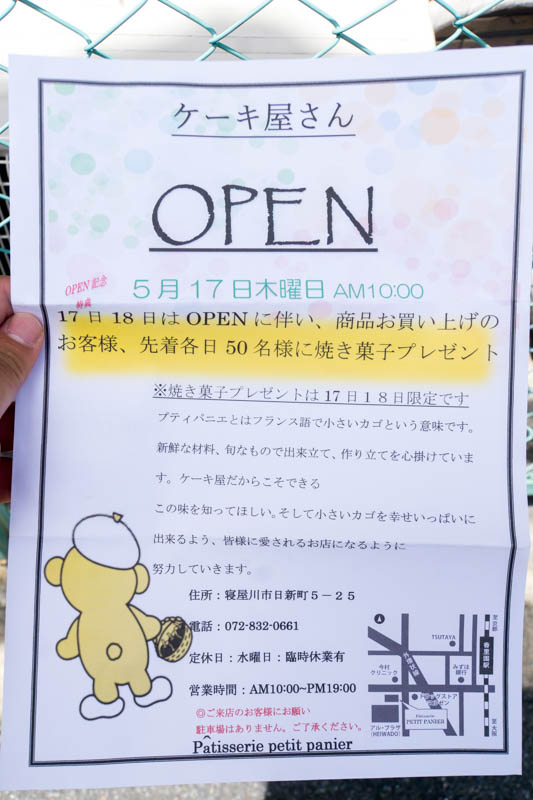 ケーキ屋さん
OPEN
OPEN記念
特典
5月17日木曜日 AM10:00
17日18日はOPENに伴い、商品お買い上げの
お客様、先着各日50名様に焼き菓子プレゼント
※焼き菓子プレゼントは17日18日限定です
プティパニエとはフランス語で小さいカゴという意味です。
新鮮な材料、旬なもので出来立て、作り立てを心掛けていま
す。ケーキ屋だからこそできる
この味を知ってほしい。そして小さいカゴを幸せいっぱいに
出来るよう、皆様に愛されるお店になるように
努力していきます。
住所：寝屋川市日新町5－25
電話：072-832-0661
定休日：水曜日：臨時休業有
営業時間：AM10:00~PM19:00
◎ご来店のお客様にお願い
駐車場はありません。ご了承ください。
Pâtisserie petit panier
至京都
TSUTAYA
香里園駅
今村
クリニック
みずほ
銀行
アル・プラザ
(HEIWADO)
Pâtisserie
PETIT PANIER
至大阪